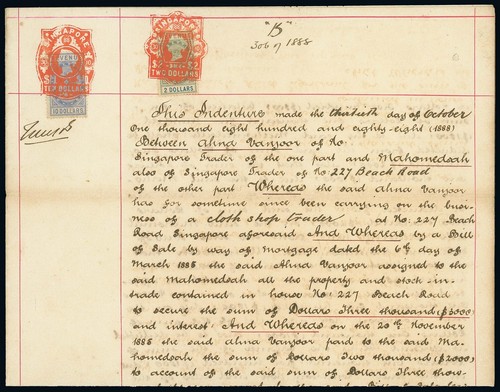 "B"
306 of 1888
SINGAPORE
TEN DOLLARS
10 DOLLARS
SINGAPORE
$2 $2
TWO DOLLARS
2 DOLLARS
This Indenture made the thirtieth day of October
One thousand eight hundred and eighty-eight (1888)
Between Ahna Vanjoor of No
Singapore Trader of the one part and Mahomedsah
also of Singapore Trader of No 227 Beach Road
of the other part Whereas the said Ahna Vanjoor
has for sometime since been carrying on the busi-
ness of a cloth shop trader at No: 227 Beach
Road Singapore aforesaid And Whereas by a Bill
of Sale by way of Mortgage dated the 6th day of
March 1885 the said Ahna Vanjoor assigned to the
said Mahomedsah all the property and stock-in-
trade contained in house No: 227 Beach Road
to secure the sum of Dollars Three thousand ($3000)
and interest, And Whereas on the 20th November
1885 the said Ahna Vanjoor paid to the said Ma-
homedsah the sum of Dollars Two thousand ($2000)
to account of the said sum of Dollars Three thou-